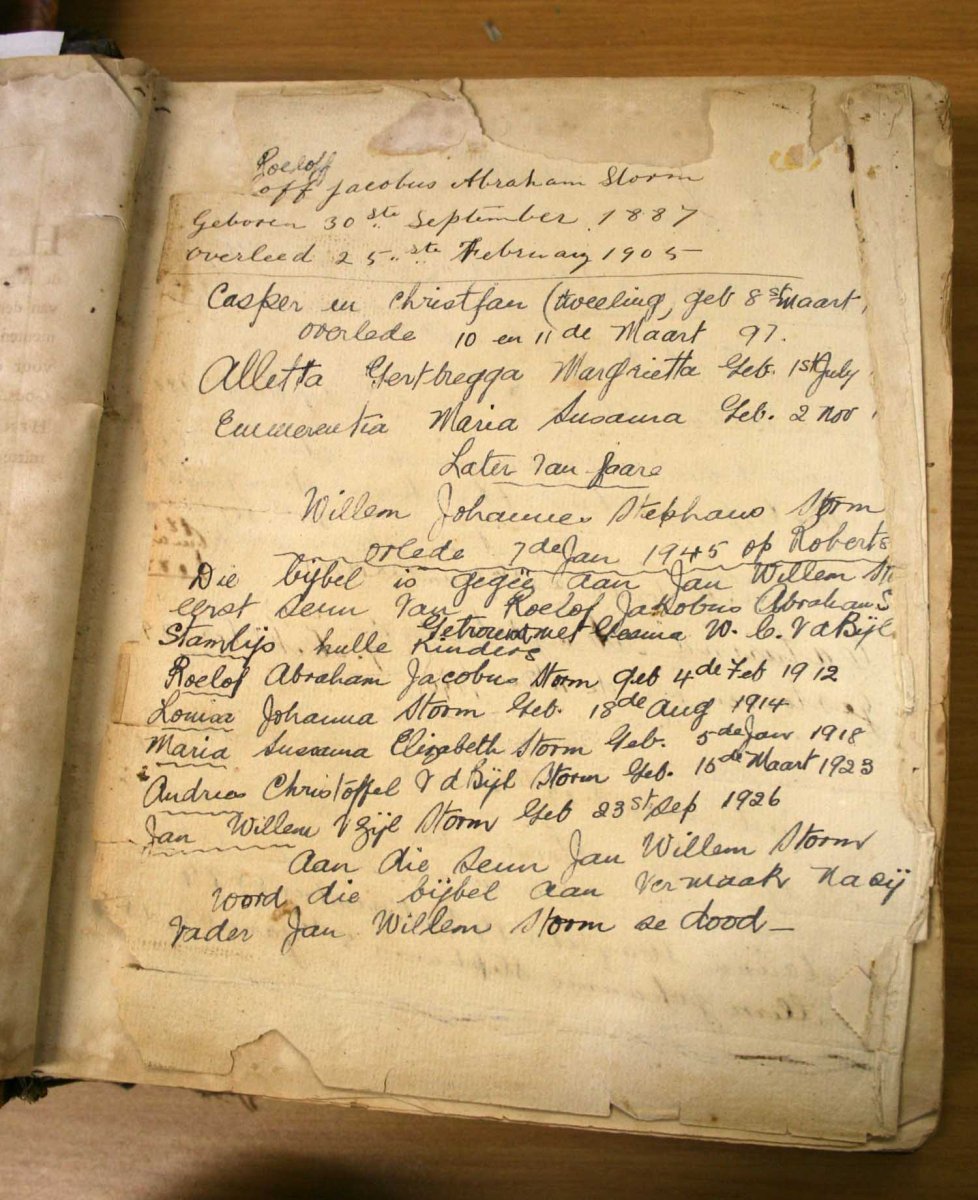 Roeloff
off Jacobus Abraham Storm
Geboren 30ste September 1887
overleed 25ste February 1905
Casper en Christfan (tweeling, geb 8st Maart,
overlede 10 en 11de Maart 97.
Alletta Gertbregga Margrietta Geb. 1st July
Emmerentia Maria Susanna Geb. 2 Nov
Later van jaare
Willem Johannes Stephans Storm
orlede 7de Jan 1945 op Roberts
Die bijbel is gegëe aan Jan Willem St
eerst seun van Roelof Jakobus Abraham S
Getrouwd met W. C. V d Bijl
Stamlijs hulle Kinders
Roelof Abraham Jacobus Storm geb 4de Feb 1912
Louisa Johanna Storm Geb. 18de Aug 1914
Maria Susanna Elizabeth Storm Geb. 5de Jan 1918
Andries Christoffel V d Bijl Storm Geb. 15de Maart 1923
Jan Willem V Zijl Storm Geb 23st Sep 1926
Aan die seun Jan Willem Storm
word die bijbel aan vermaak na sij
Vader Jan Willem Storm se dood —